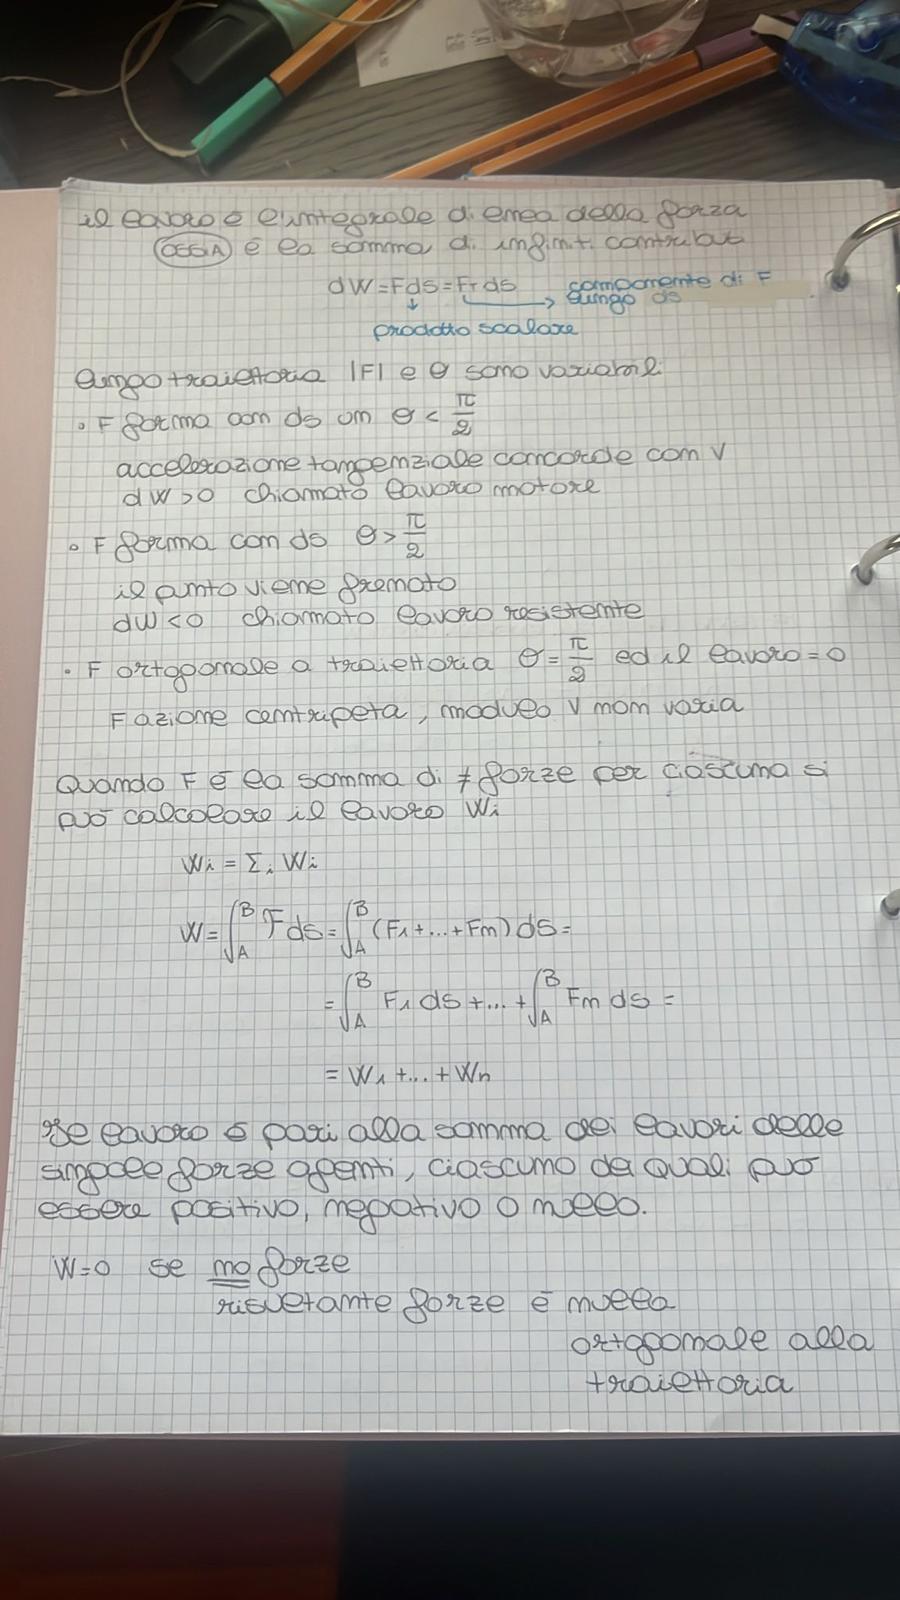 il lavoro è l'integrale di linea della forza
OSSIA è la somma di infiniti contributi
dW=Fds=F_T ds → componente di F
lungo ds
↓
prodotto scalare
lungo traiettoria |F| e θ sono variabili
• F forma con ds un θ < π/2
accelerazione tangenziale concorde con v
dW>0 chiamato lavoro motore
• F forma con ds θ > π/2
il punto viene frenato
dW<0 chiamato lavoro resistente
• F ortogonale a traiettoria θ = π/2 ed il lavoro = 0
F azione centripeta, modulo v non varia
Quando F è la somma di ≠ forze per ciascuna si
può calcolare il lavoro Wi
Wi = Σi Wi
W = ∫_A^B F ds = ∫_A^B (F1+...+Fn) ds =
= ∫_A^B F1 ds +...+ ∫_A^B Fn ds =
= W1 +...+ Wn
Il lavoro è pari alla somma dei lavori delle
singole forze agenti, ciascuno dei quali può
essere positivo, negativo o nullo.
W=0 se no forze
risultante forze è nulla
ortogonale alla
traiettoria